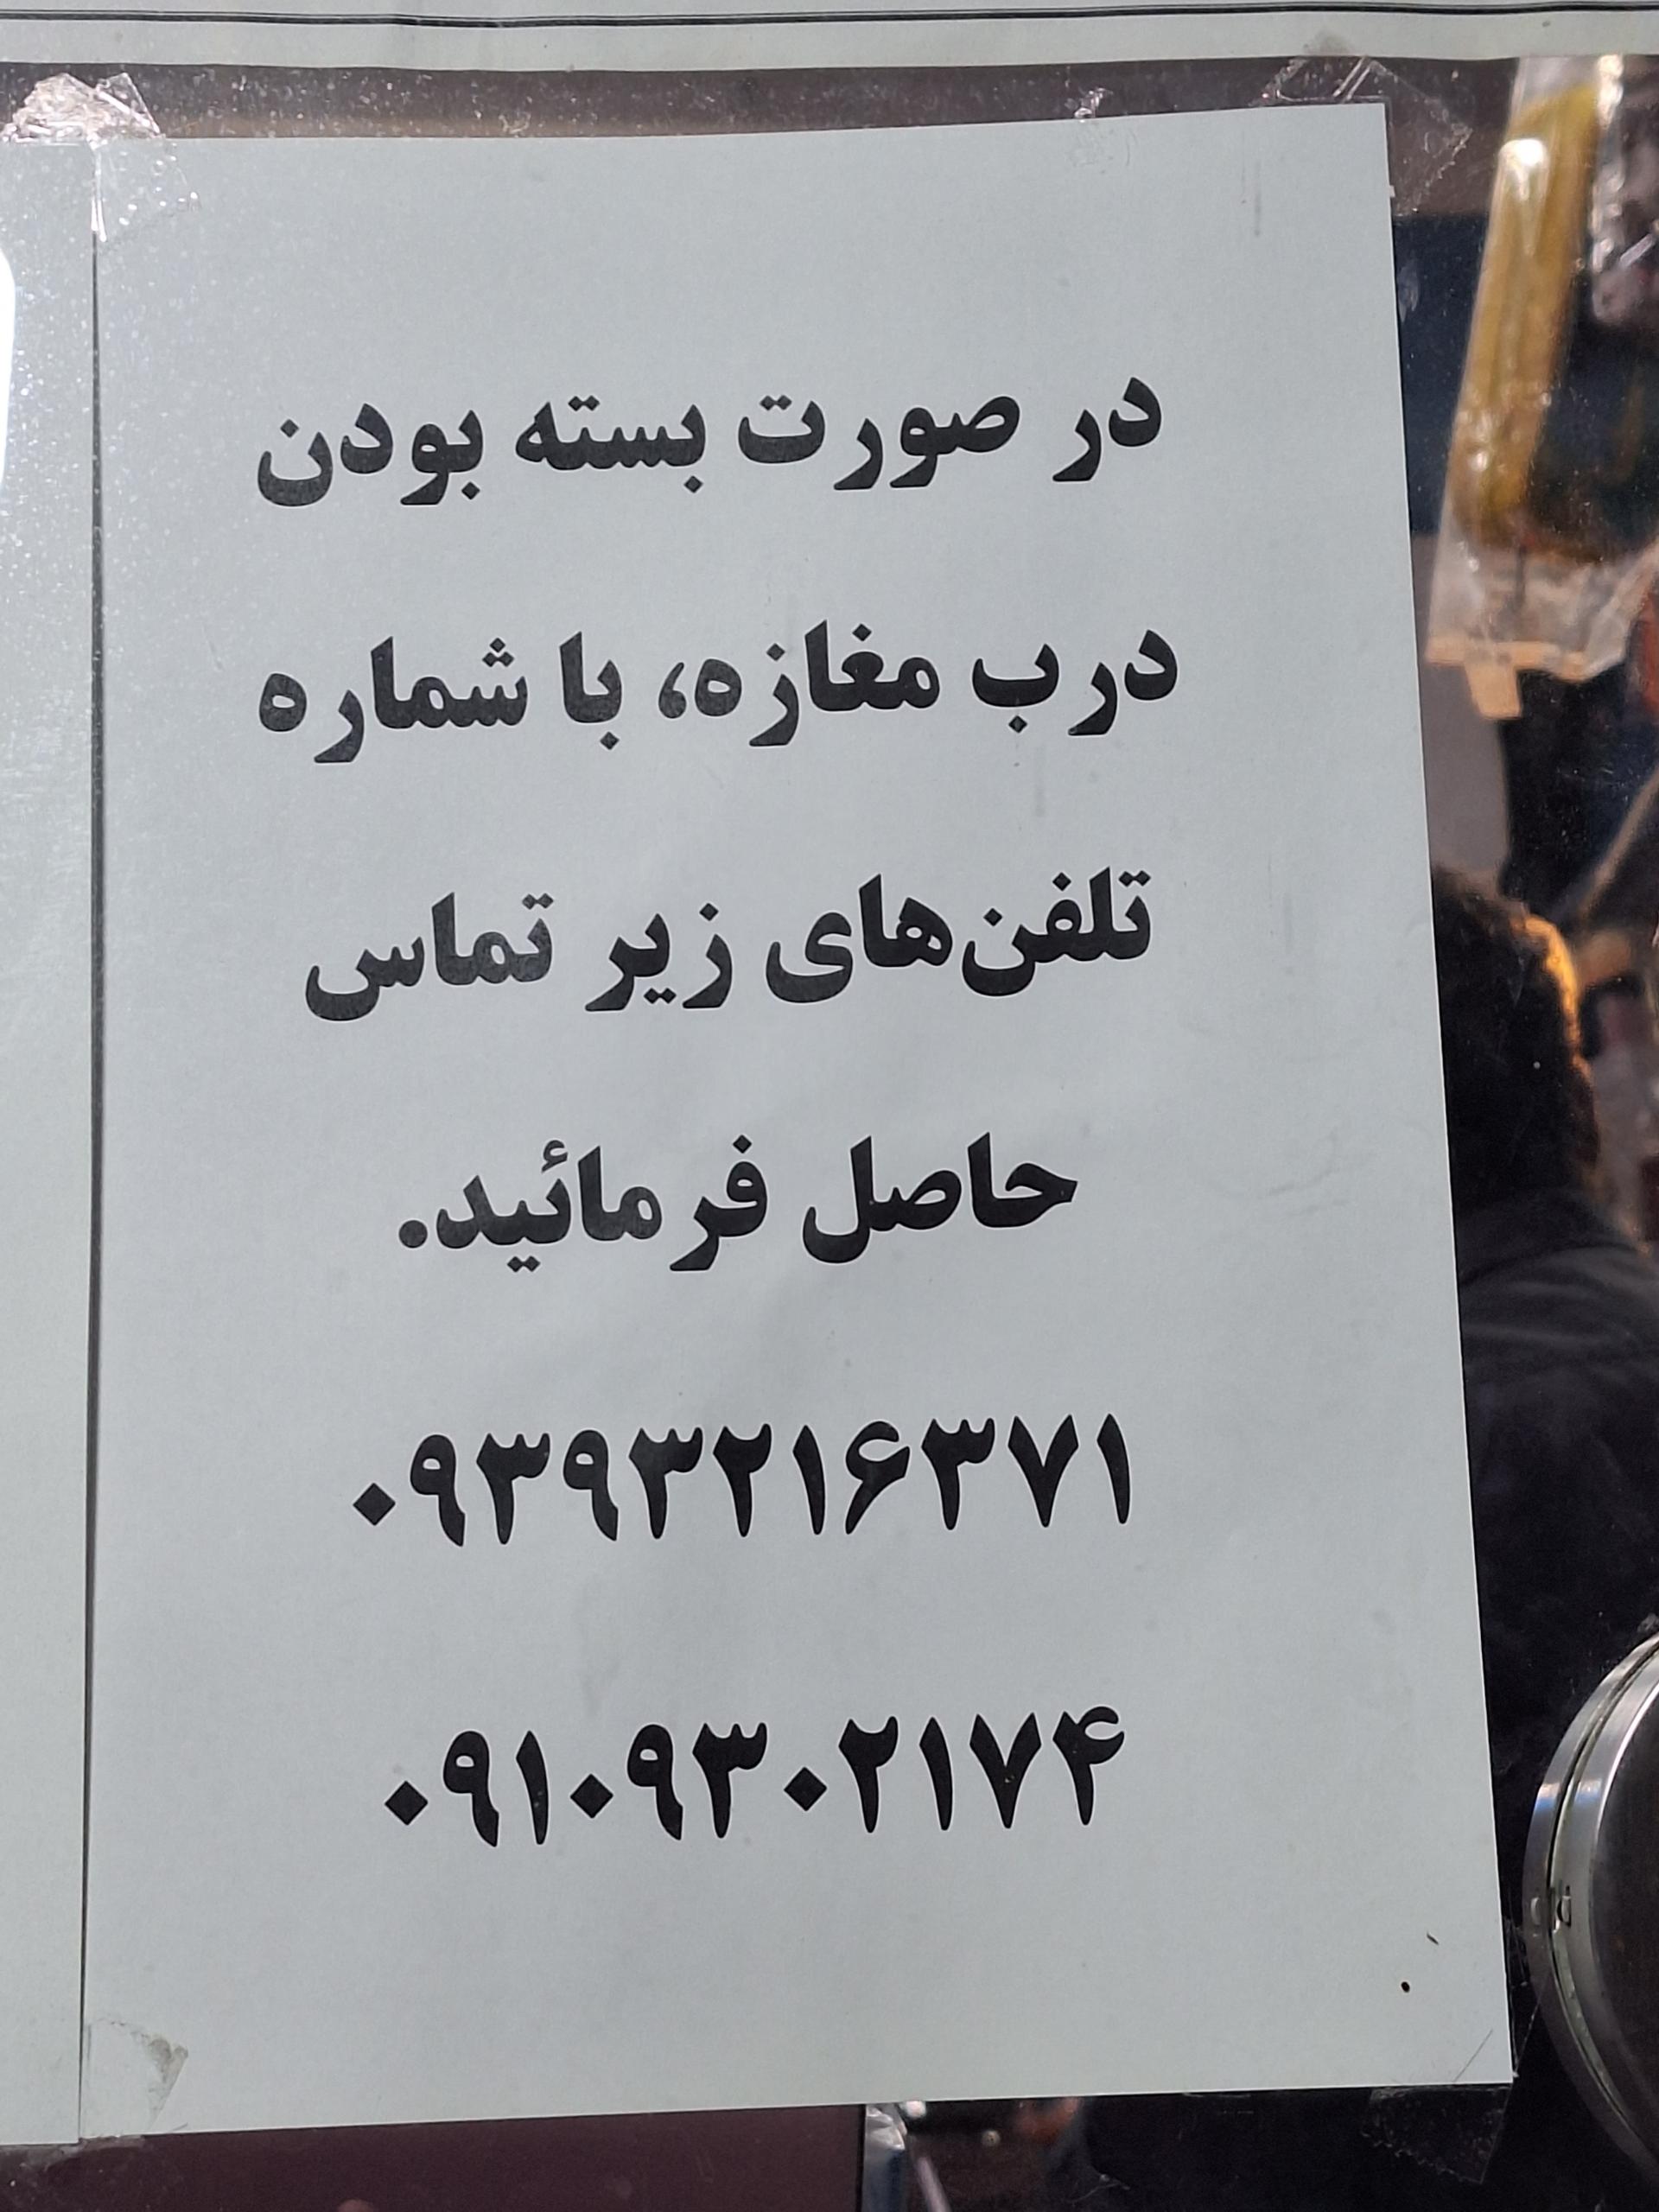 در صورت بسته بودن
درب مغازه، با شماره
تلفن‌های زیر تماس
حاصل فرمائید.
۰۹۳۹۳۲۱۶۳۷۱
۰۹۱۰۹۳۰۲۱۷۴